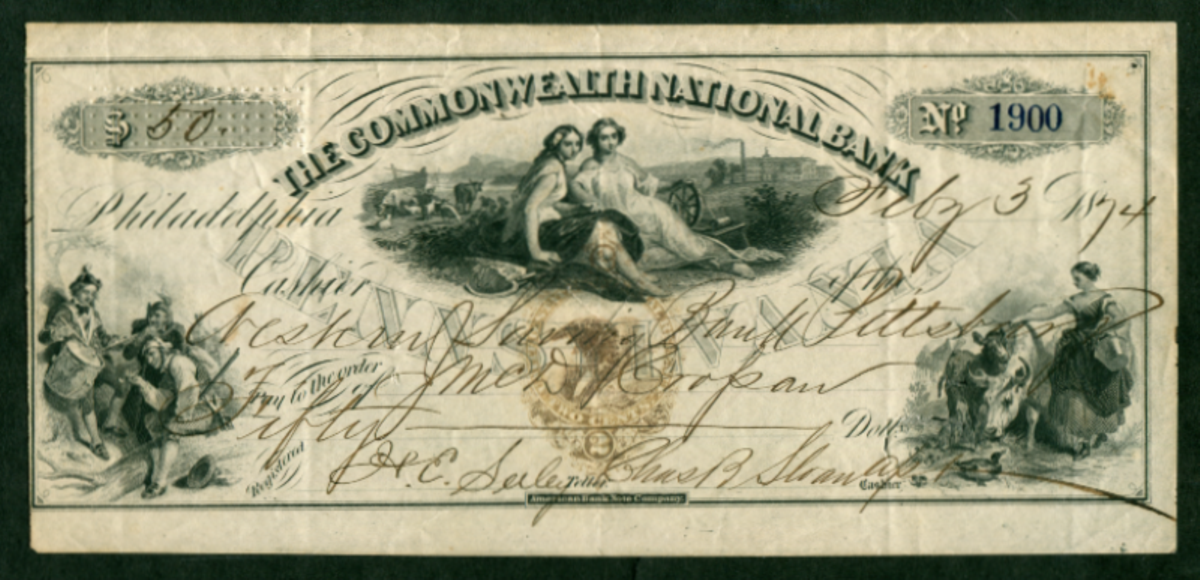 $ 50.
THE COMMONWEALTH NATIONAL BANK
Nº 1900
Philadelphia Feby 3 1874
PENNSYLVANIA
Cashier of the
Western Savings Bank Pittsburg
Pay to the order of J McD
Fifty Dolls
Registered
H. C. Seeley Teller Chas B Sloan
Cashier
American Bank Note Company.